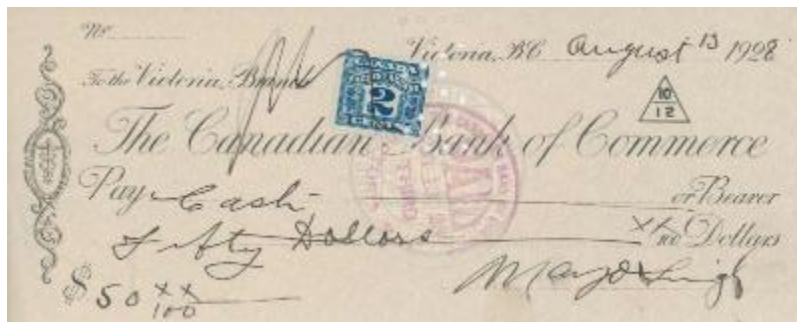 No
Victoria, B.C. August 13 1928
To the Victoria Branch
10
12
2
The Canadian Bank of Commerce
Pay Cash or Bearer
Fifty Dollars xx/100 Dollars
$50 xx/100
Mayo Singh